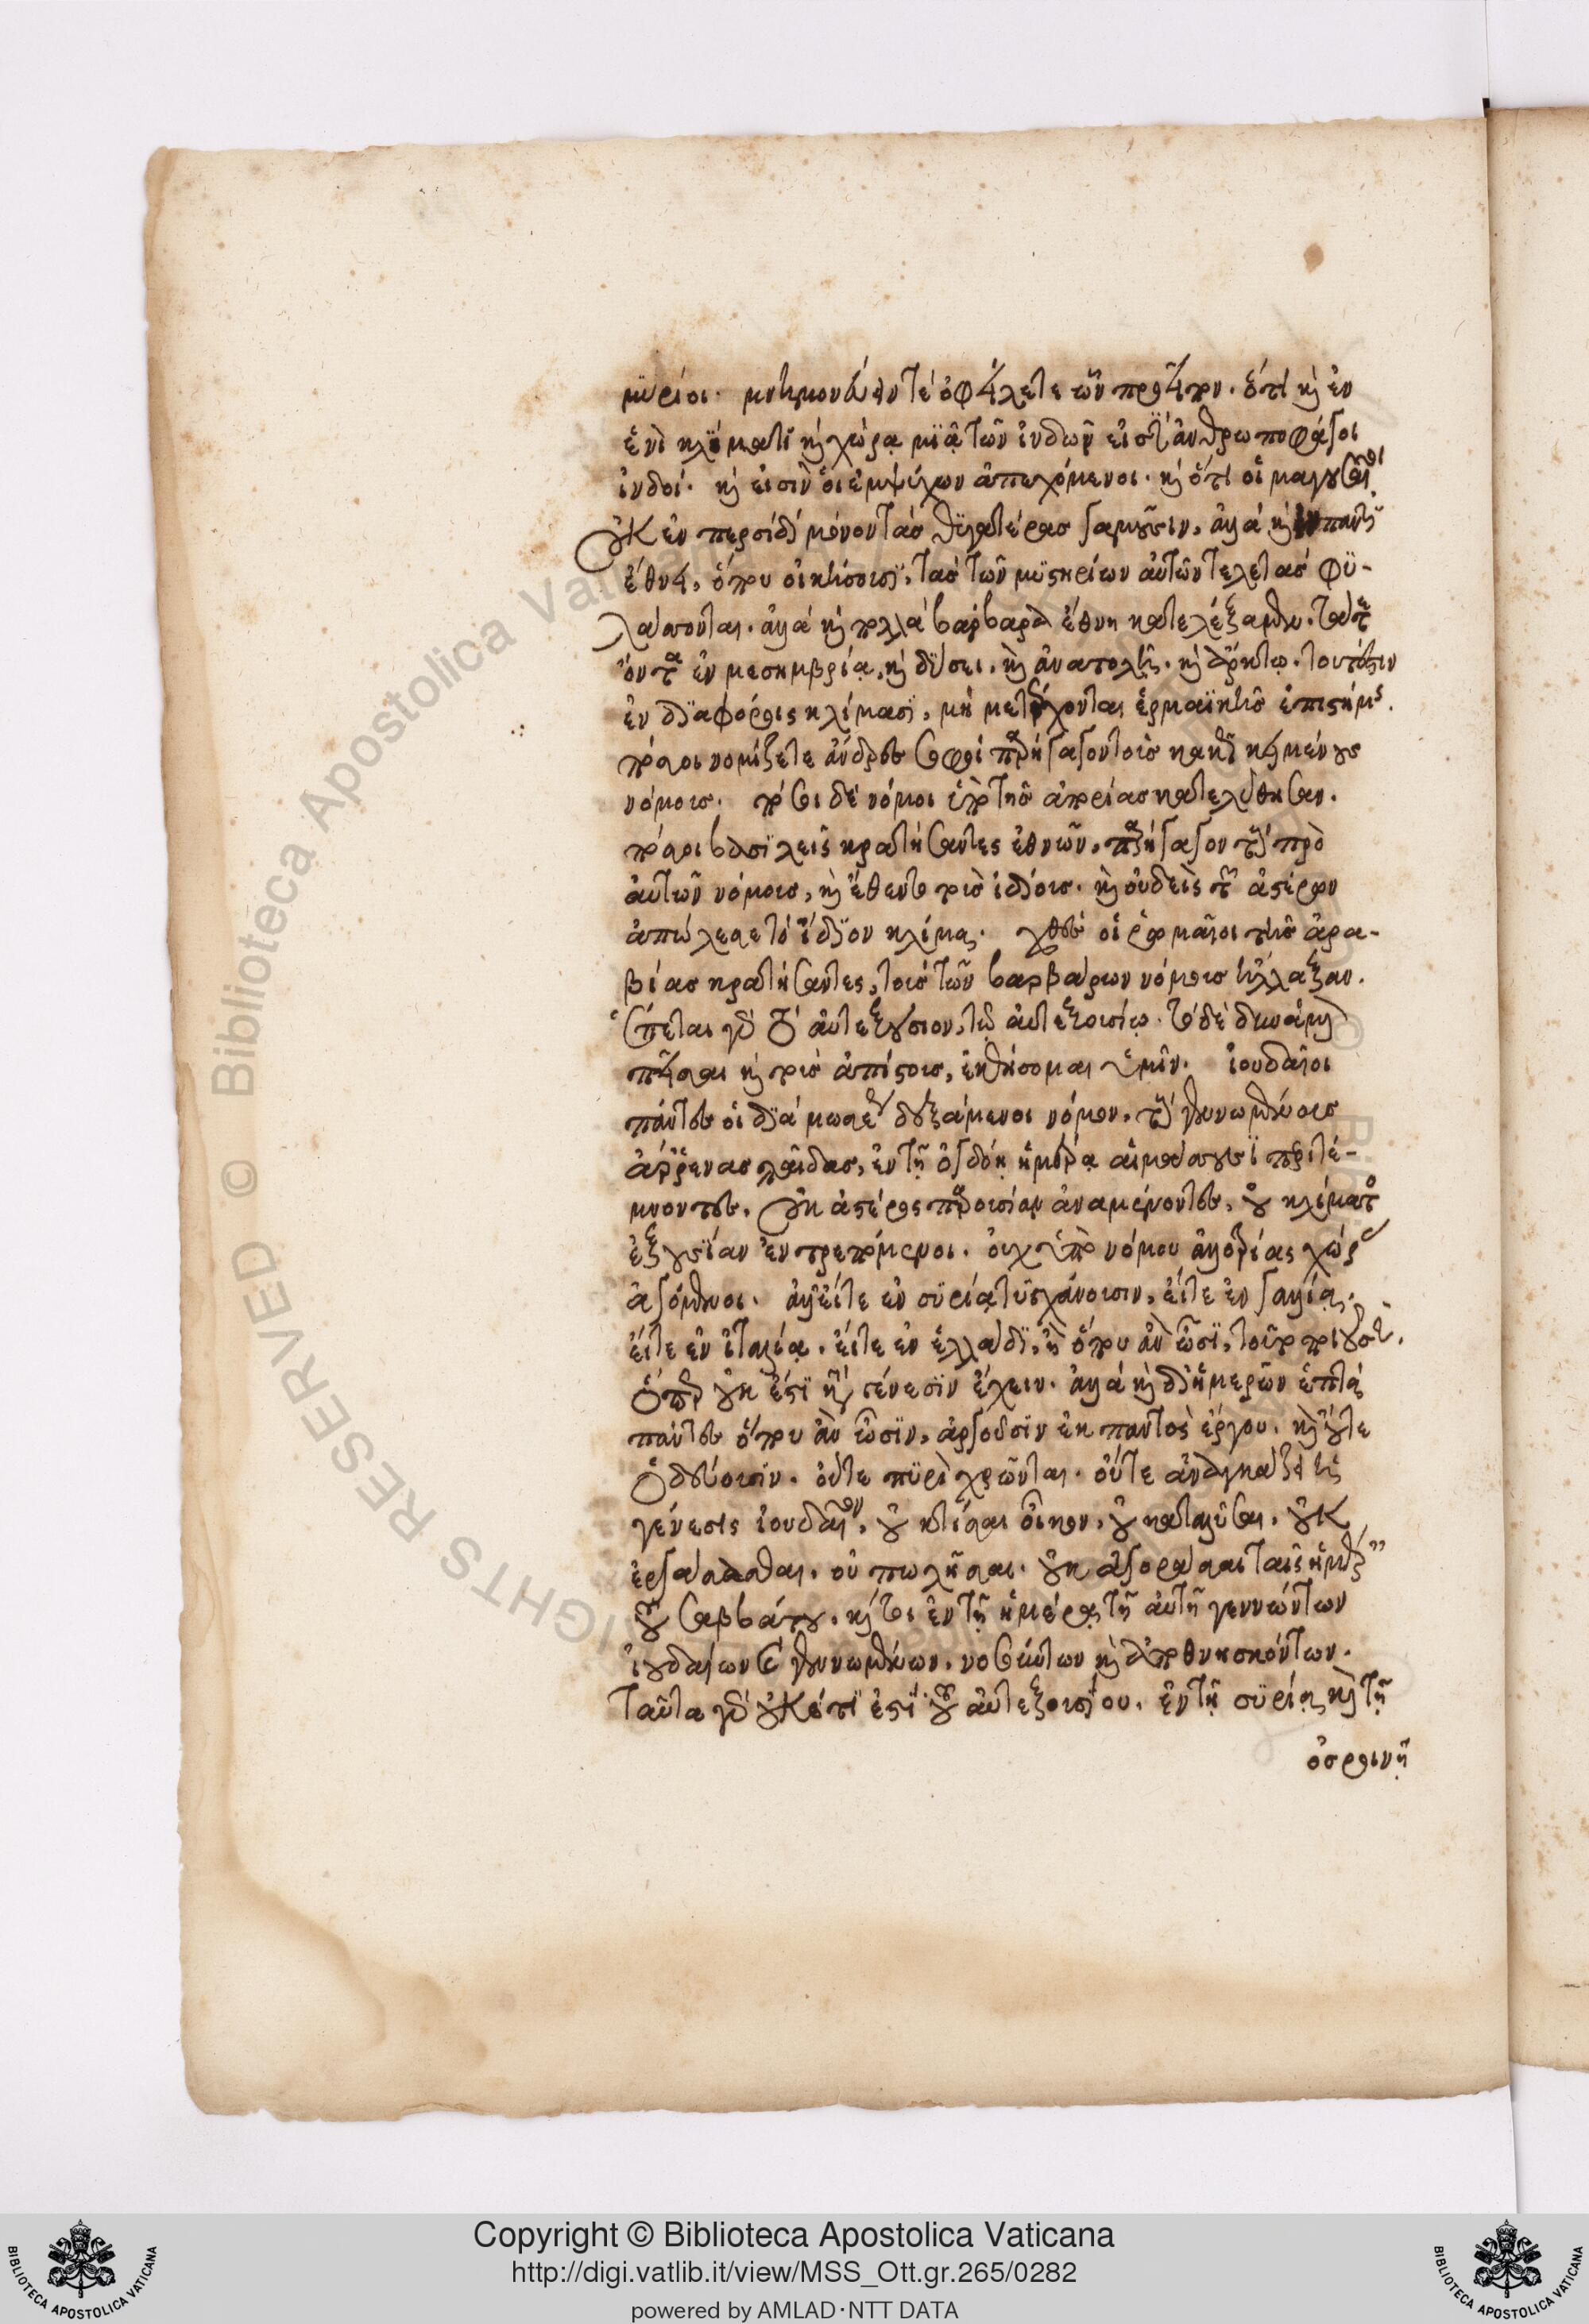 μϋρίοι. μνημονεύειν τὲ ὀφείλετε ὧν προεῖπον. ὅτι καὶ ἐν
ἑνὶ κλίματι καὶ χώρᾳ μϊᾷ τῶν ἰνδῶν εἰσῒ ἀνθρωποφάγοι
ἰνδοί. καὶ εἰσὶν οἱ ἐμψύχων ἀπεχόμενοι. καὶ ὅτι οἱ μαγουσαῖοι
οὐκ ἐν περσίδι μόνον τὰσ θϋγατέρασ γαμοῦσιν, ἀλλὰ καὶ ἐν παντῒ
ἔθνει, ὅπου οἰκήσουσϊ, τὰσ τῶν μϋστηρίων αὐτῶν τελετὰσ φϋ-
λάττονται. ἀλλὰ καὶ πολλὰ βάρβαρα ἔθνη κατελέξαμεν. τὰ τε
ὄντα ἐν μεσημβρίᾳ, καὶ δΰσει, καὶ ἀνατολῇ. καὶ ἄρκτῳ. τουτέστιν
ἐν διαφόροις κλίμασϊ, μὴ μετέχονται ἑρμαϊκῆσ ἐπιστήμης.
πόσοι νομίζετε ἄνδρες σοφοὶ παρήγαγον τοὺσ κακῶς κειμένους
νόμουσ. πόσοι δὲ νόμοι ὑπὸ τῆσ ἀπορίασ κατελύθησαν.
πόσοι βασϊλεῖς κρατήσαντες ἐθνῶν, παρήγαγον τοὺς πρὸ
αὐτῶν νόμουσ, καὶ ἔθεντο τοὺσ ἰδίουσ. καὶ οὐδεὶς τῶν ἀστέρων
ἀπώλεσε τὸ ἴδϊον κλίμα. χθὲς οἱ ῥωμαῖοι τῆσ ἀρα-
βίασ κρατήσαντες, τοὺσ τῶν βαρβάρων νόμουσ ἤλλαξαν.
ἕπεται γὰρ τὸ αὐτεξούσιον, τῷ αὐτεξουσίῳ. τὸ δὲ δυνάμενον
πεῖσαι καὶ τοὺσ ἀπίστουσ, ἐκθήσομαι ὑμῖν. ἰουδαῖοι
πάντες οἱ διὰ μωσέως δεξάμενοι νόμον. τοὺς γενομένουσ
ἄῤῥενασ παῖδασ, ἐν τῇ ὀγδόῃ ἡμέρᾳ αἱμάσουσϊ περιτέ-
μνοντες. οὐκ ἀστέροσ παρουσίαν ἀναμένοντες, οὐ κλίματος
ἐξουσΐαν ἐντρεπόμενοι. οὐχ ὑπὸ νόμου ἀλλοτρίας χώρας
ἀγόμενοι. ἀλλ' εἴτε ἐν συρίᾳ τϋγχάνουσιν, εἴτε ἐν γαλλίᾳ.
εἴτε ἐν ἰταλίᾳ. εἴτε ἐν ἑλλάδϊ, ἢ ὅπου ἂν ὦσϊ, τοῦτο ποιοῦσι.
ὅπερ οὐκ ἔστϊ κατὰ γένεσϊν ἔχειν. ἀλλὰ καὶ δι' ἡμερῶν ἑπτὰ
πάντες ὅπου ἂν ὦσϊν, ἀργοῦσϊν ἐκ παντὸς ἔργου. καὶ οὔτε
ὁδεύουσϊν. οὔτε πϋρὶ χρῶνται. οὔτε ἀναγκάζει ἡ
γένεσις ἰουδαῖον, οὐ κτίσαι οἶκον, οὐ καταλῦσαι. οὐκ
ἐργάσασθαι. οὐ πωλῆσαι. οὐκ ἀγοράσαι ταῖς ἡμέραις
τοῦ σαββάτου. καίτοι ἐν τῇ ἡμέρᾳ τῇ αὐτῇ γεννώντων
ἰουδαίων καὶ γενομένων. νοσούντων καὶ ἀποθνησκόντων.
ταῦτα γὰρ οὐκέτϊ ἐστΐ τοῦ αὐτεξουσίου. ἐν τῇ συρίᾳ καὶ τῇ
ὀσροινῇ
Copyright © Biblioteca Apostolica Vaticana
http://digi.vatlib.it/view/MSS_Ott.gr.265/0282
powered by AMLAD·NTT DATA